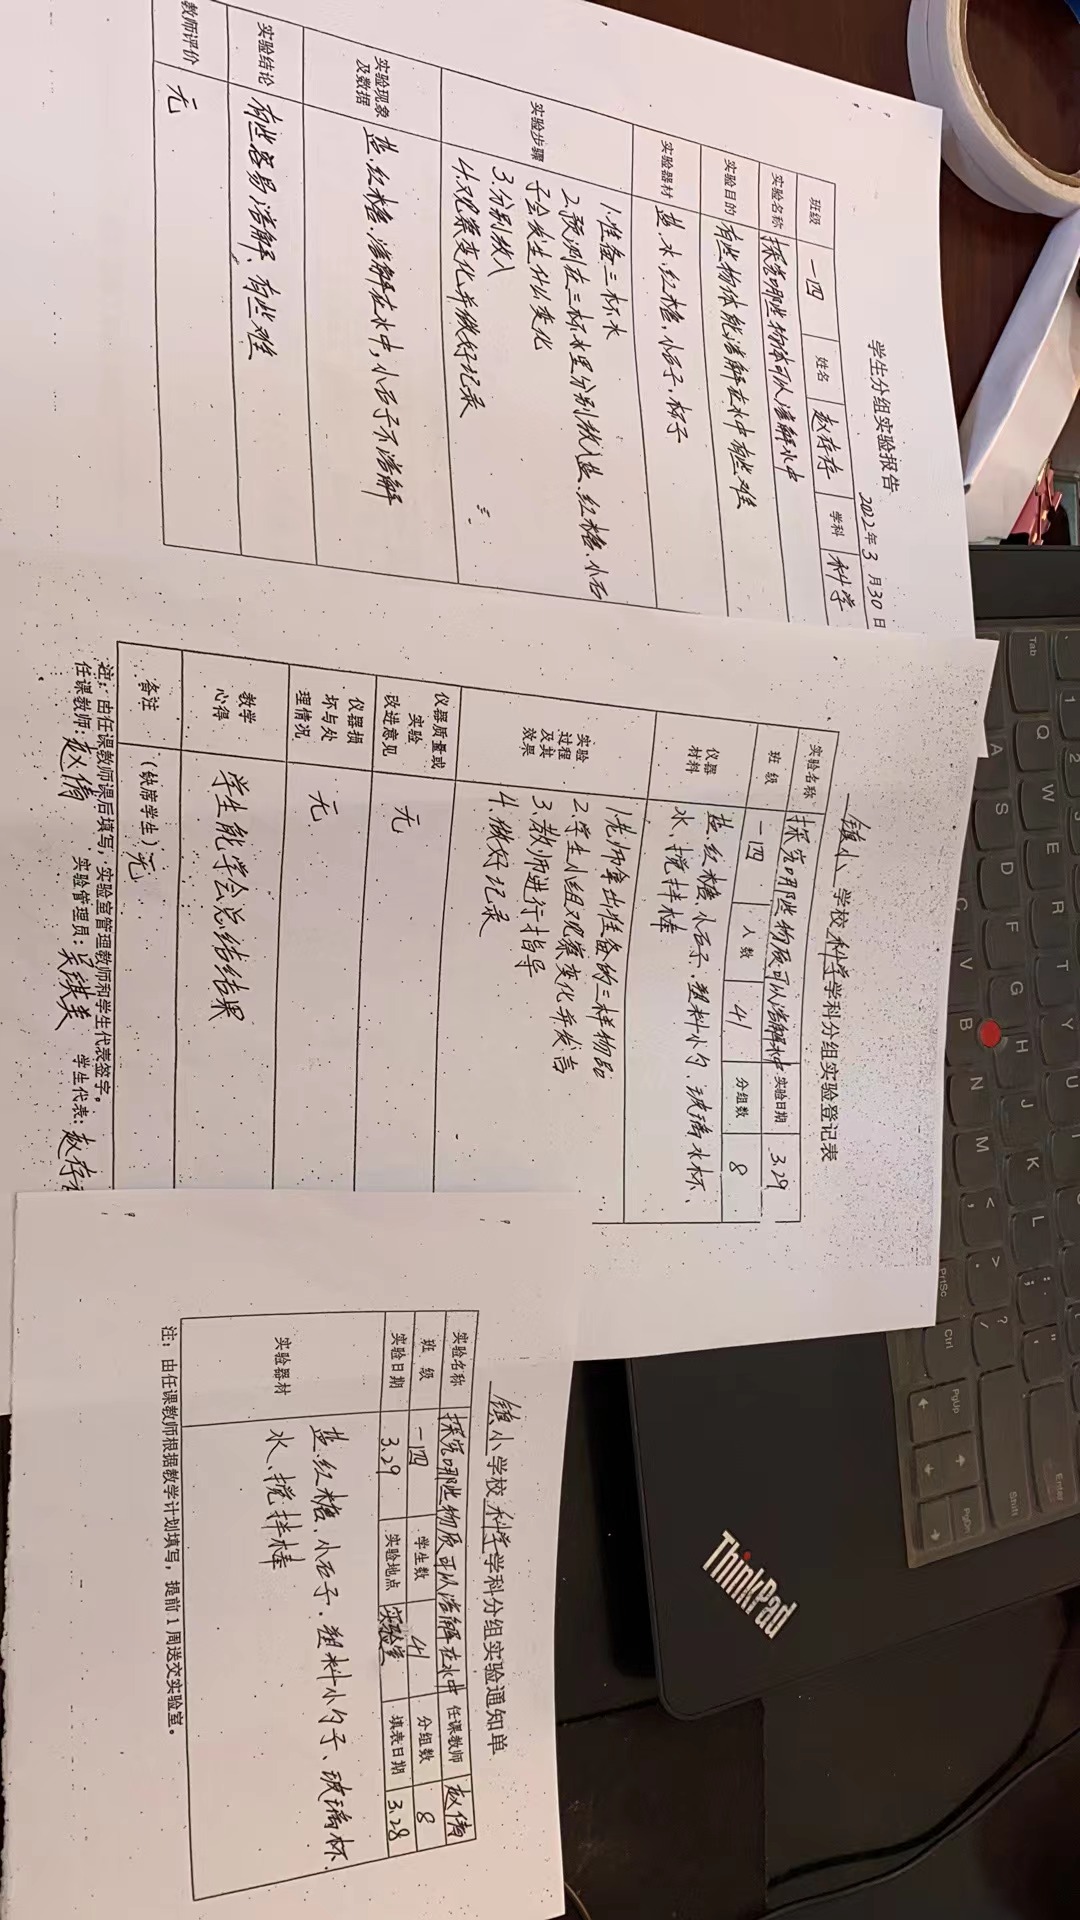 学生分组实验报告
2022年3月30日
班级 一四 姓名 赵存存 学科 科学
实验名称 探究哪些物体可以溶解水中
实验目的 有些物体能溶解在水中有些难
实验器材 盐、水、红糖、小石子、杯子
实验步骤
1.准备三杯水
2.预测在三杯水里分别放入盐、红糖、小石
子会发生什么变化
3.分别放入
4.观察变化并做好记录
实验现象
及数据
盐、红糖、溶解在水中,小石子不溶解
实验结论 有些容易溶解、有些难
教师评价 无
镇小学校科学学科分组实验登记表
实验名称 探究哪些物质可以溶解水中 实验日期 3.29
班级 一四 人数 41 分组数 8
仪器
材料
盐、红糖、小石子、塑料小勺、玻璃水杯、
水、搅拌棒
实验
过程
及其
效果
1.老师拿出准备的三样物品
2.学生小组观察变化并发言
3.教师进行指导
4.做好记录
仪器质量或
实验
改进意见
无
仪器损
坏与处
理情况
无
教学
心得
学生能学会总结结果
备注 (缺席学生)无
注:由任课教师课后填写,实验室管理教师和学生代表签字。
任课教师:赵倩 实验管理员:吴淇美 学生代表:赵存
镇小学校科学学科分组实验通知单
实验名称 探究哪些物质可以溶解在水中 任课教师 赵倩
班级 一四 学生数 41 分组数 8
实验日期 3.29 实验地点 实验室 填表日期 3.28
实验器材
盐、红糖、小石子、塑料小勺子、玻璃杯、
水、搅拌棒
注:由任课教师根据教学计划填写,提前1周送交实验室。
Tab
Q W E R T Y U
A S D F G H J K L
C V B N M
PrtSc Ctrl PgUp PgDn
Shift
Enter
ThinkPad